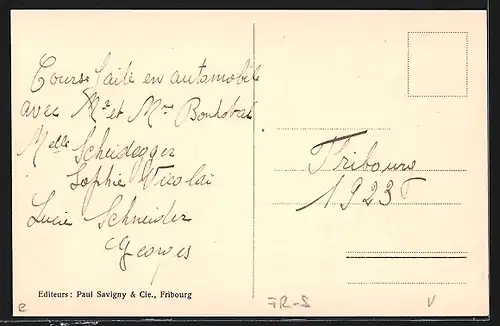 Course faite en automobile
avec Mr et Mme Bonhotal
Melle Scheidegger
Sophie Nicolai
Lucie Schneider
Georges
Fribourg
1923
Editeurs: Paul Savigny & Cie., Fribourg
FR-S
V
e